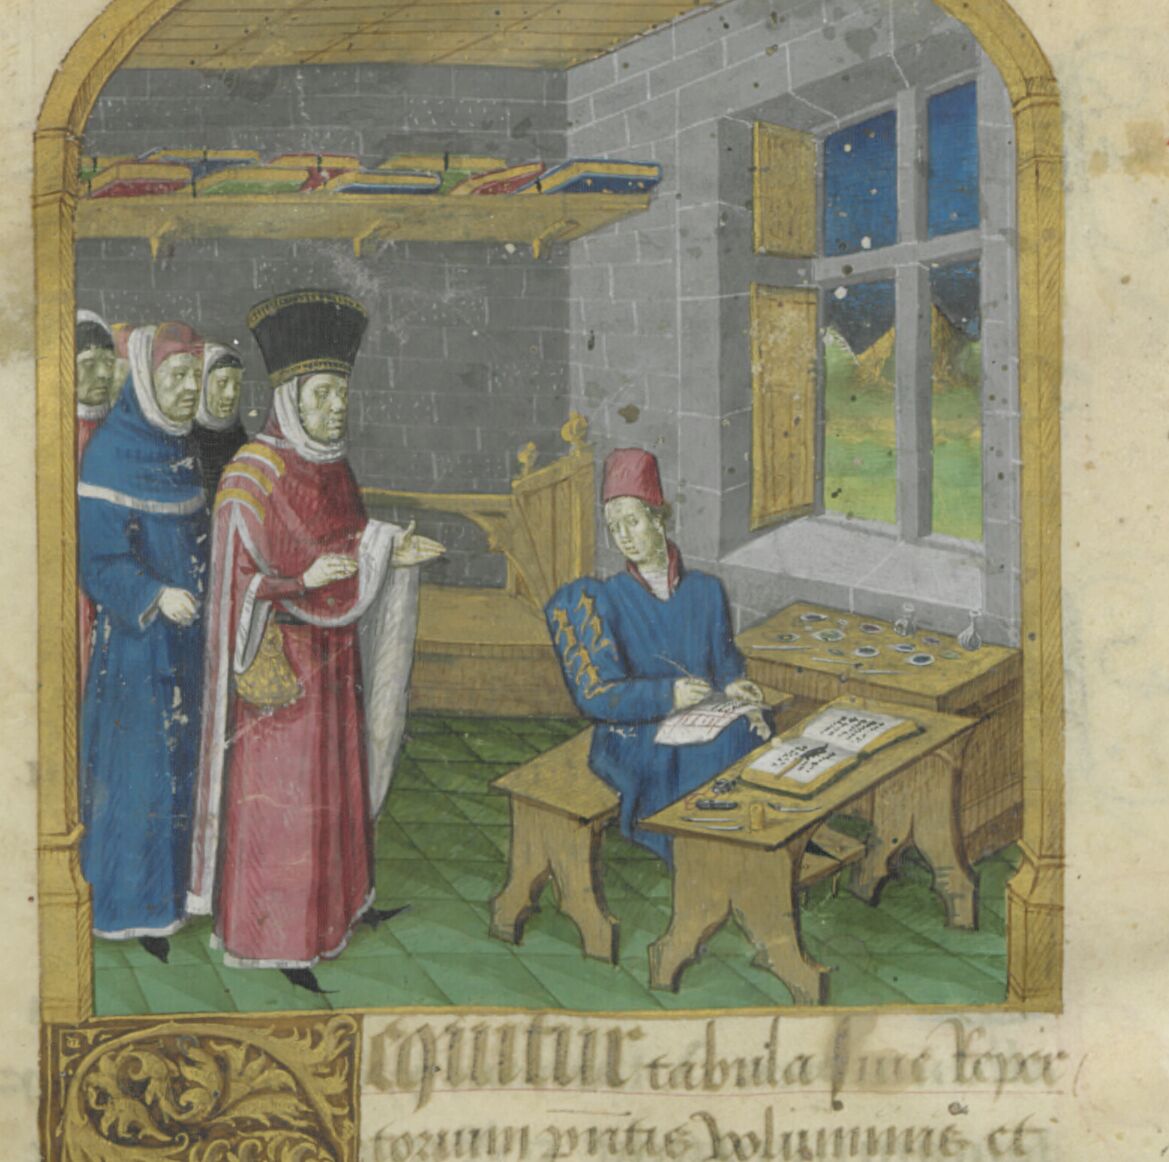 Sequitur tabula siue Reper
torium pntis voluminis et